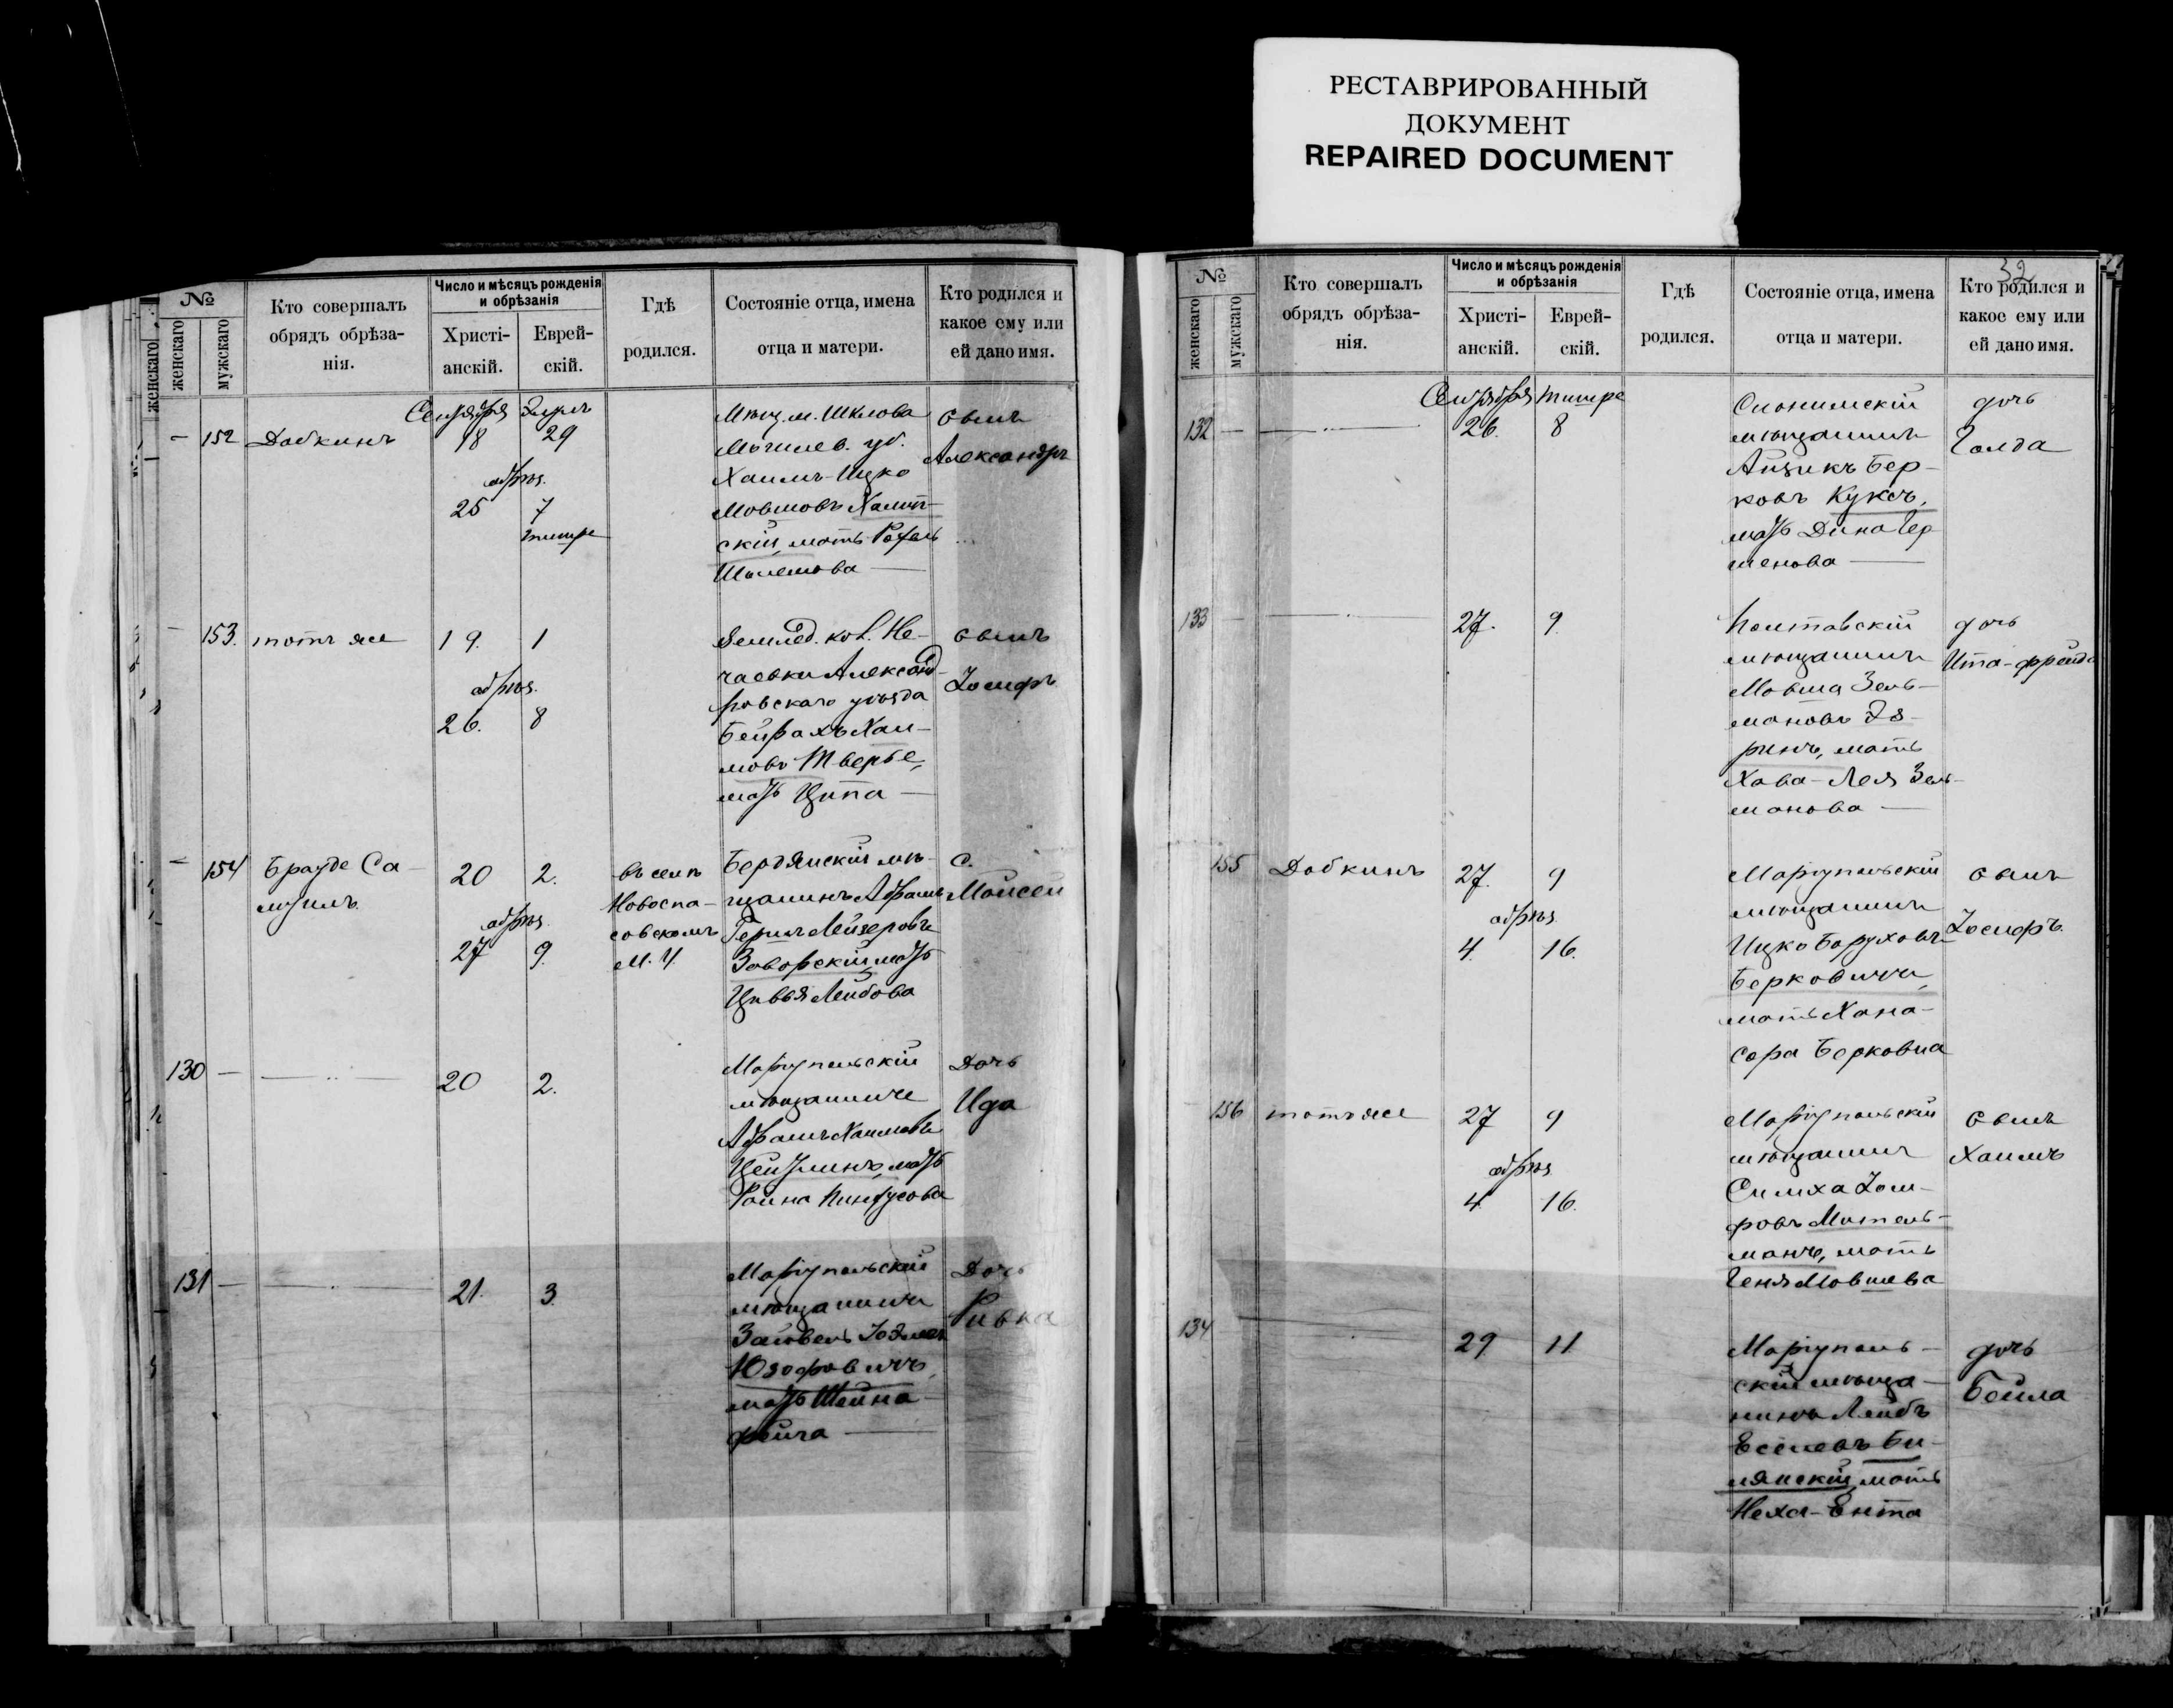 РЕСТАВРИРОВАННЫЙ
ДОКУМЕНТ
REPAIRED DOCUMENT
№
женскаго
женскаго
мужскаго
Кто совершалъ
обрядъ обрѣза-
нія.
Число и мѣсяцъ рожденія
и обрѣзанія
Христі-
анскій.
Еврей-
скій.
Гдѣ
родился.
Состояніе отца, имена
отца и матери.
Кто родился и
какое ему или
ей дано имя.
— 152 Добкинъ
Сентября Элулъ
18 29
обрѣз.
25 7
тишре
Мѣщ. м. Шклова
Могилев. уѣ.
Хаимъ-Ицко
Мовшовъ
скій, мать Рахель
сынъ
Александръ
153. тотъ же
19. 1
обрѣз.
26. 8
Землед. кол. Не-
чаевки Александ-
ровскаго уѣзда
Бейрахъ Хаи-
мовъ Тверье,
мать Ципа —
сынъ
Іосифъ
— 154 Брауде Са-
муилъ.
20 2.
обрѣз.
27 9.
въ селѣ
Новоспа-
совскомъ
Бердянскій мѣ-
щанинъ Абрамъ
Гершъ Лейзеровъ
Заворскій, мать
Цивья Лейбова
с.
Моисей
130 —
20 2.
Маріупольскій
мѣщанинъ
Абрамъ Хаимовъ
Цейтлинъ, мать
Пинхусова
Дочь
Ида
131 —
21. 3.
Маріупольскій
мѣщанинъ
Юзофовичъ,
мать Шейна-
фейга —
Дочь
Ривка
32
№
женскаго
мужскаго
Кто совершалъ
обрядъ обрѣза-
нія.
Число и мѣсяцъ рожденія
и обрѣзанія
Христі-
анскій.
Еврей-
скій.
Гдѣ
родился.
Состояніе отца, имена
отца и матери.
Кто родился и
какое ему или
ей дано имя.
132 —
Сентября тишре
26. 8
Слонимскій
мѣщанинъ
Айзикъ Бер-
ковъ Куксъ,
мать Дина Гер
шенова —
дочь
Голда
133 —
27. 9.
Полтавскій
мѣщанинъ
Мовша Зель-
мановъ Эз-
ринъ, мать
Хава-Лея Зель-
манова —
дочь
Ита-фрейда
155 Добкинъ
27. 9
обрѣз
4. 16.
Маріупольскій
мѣщанинъ
Ицко Боруховъ
Берковичъ,
мать Хана-
Сора Берковна
сынъ
Іосифъ.
156 тотъ же
27 9
обрѣз
4 16.
Маріупольскій
мѣщанинъ
Симха Іоси-
фовъ Митель-
манъ, мать
Геня Мовшева
сынъ
Хаимъ
134
29 11
Маріуполь-
скій мѣща-
нинъ Лейбъ
Еселевъ Би-
лянскій, мать
Неха-Ента
дочь
Бейла